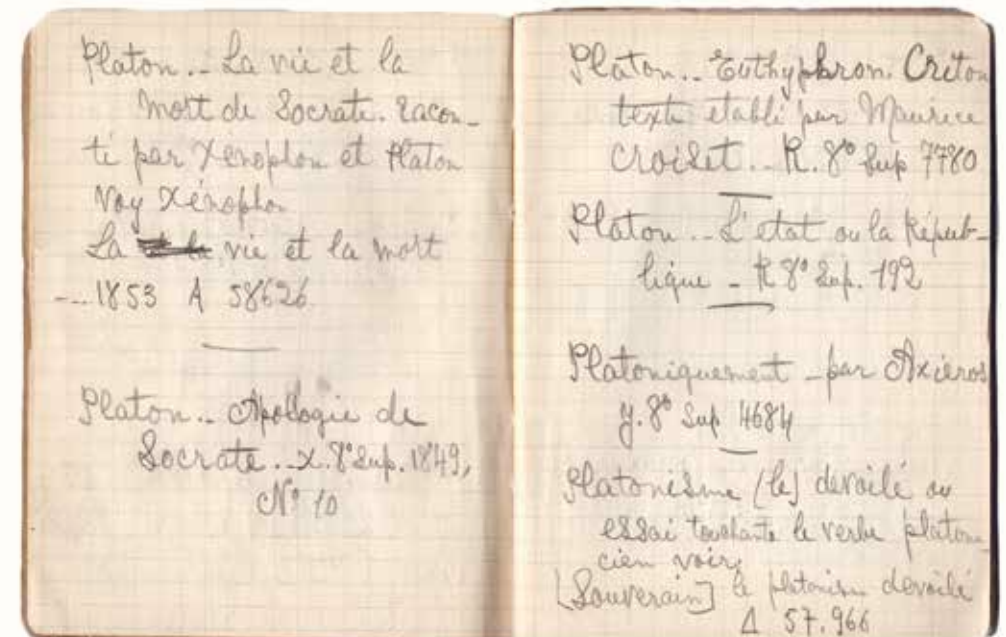 Platon.. La vie et la
mort de Socrate. racon-
té par Xénophon et Platon
Voy Xénophon
La vie et la mort
--- 1853 A 58626
Platon.. Apologie de
Socrate..X.8° Sup. 1849,
N° 10
Platon.. Euthyphron. Criton
texte etabli par Maurice
Croiset.. R. 8° Sup 7780
Platon.. L'état ou la Répub-
lique - R 8° Sup. 192
Platoniquement - par Axieros
y. 8° Sup 4684
Platonisme (le) devoilé ou
essai touchante le verbe platoni-
cien voir
[Souverain] le platonisme devoilé
Δ 57.966